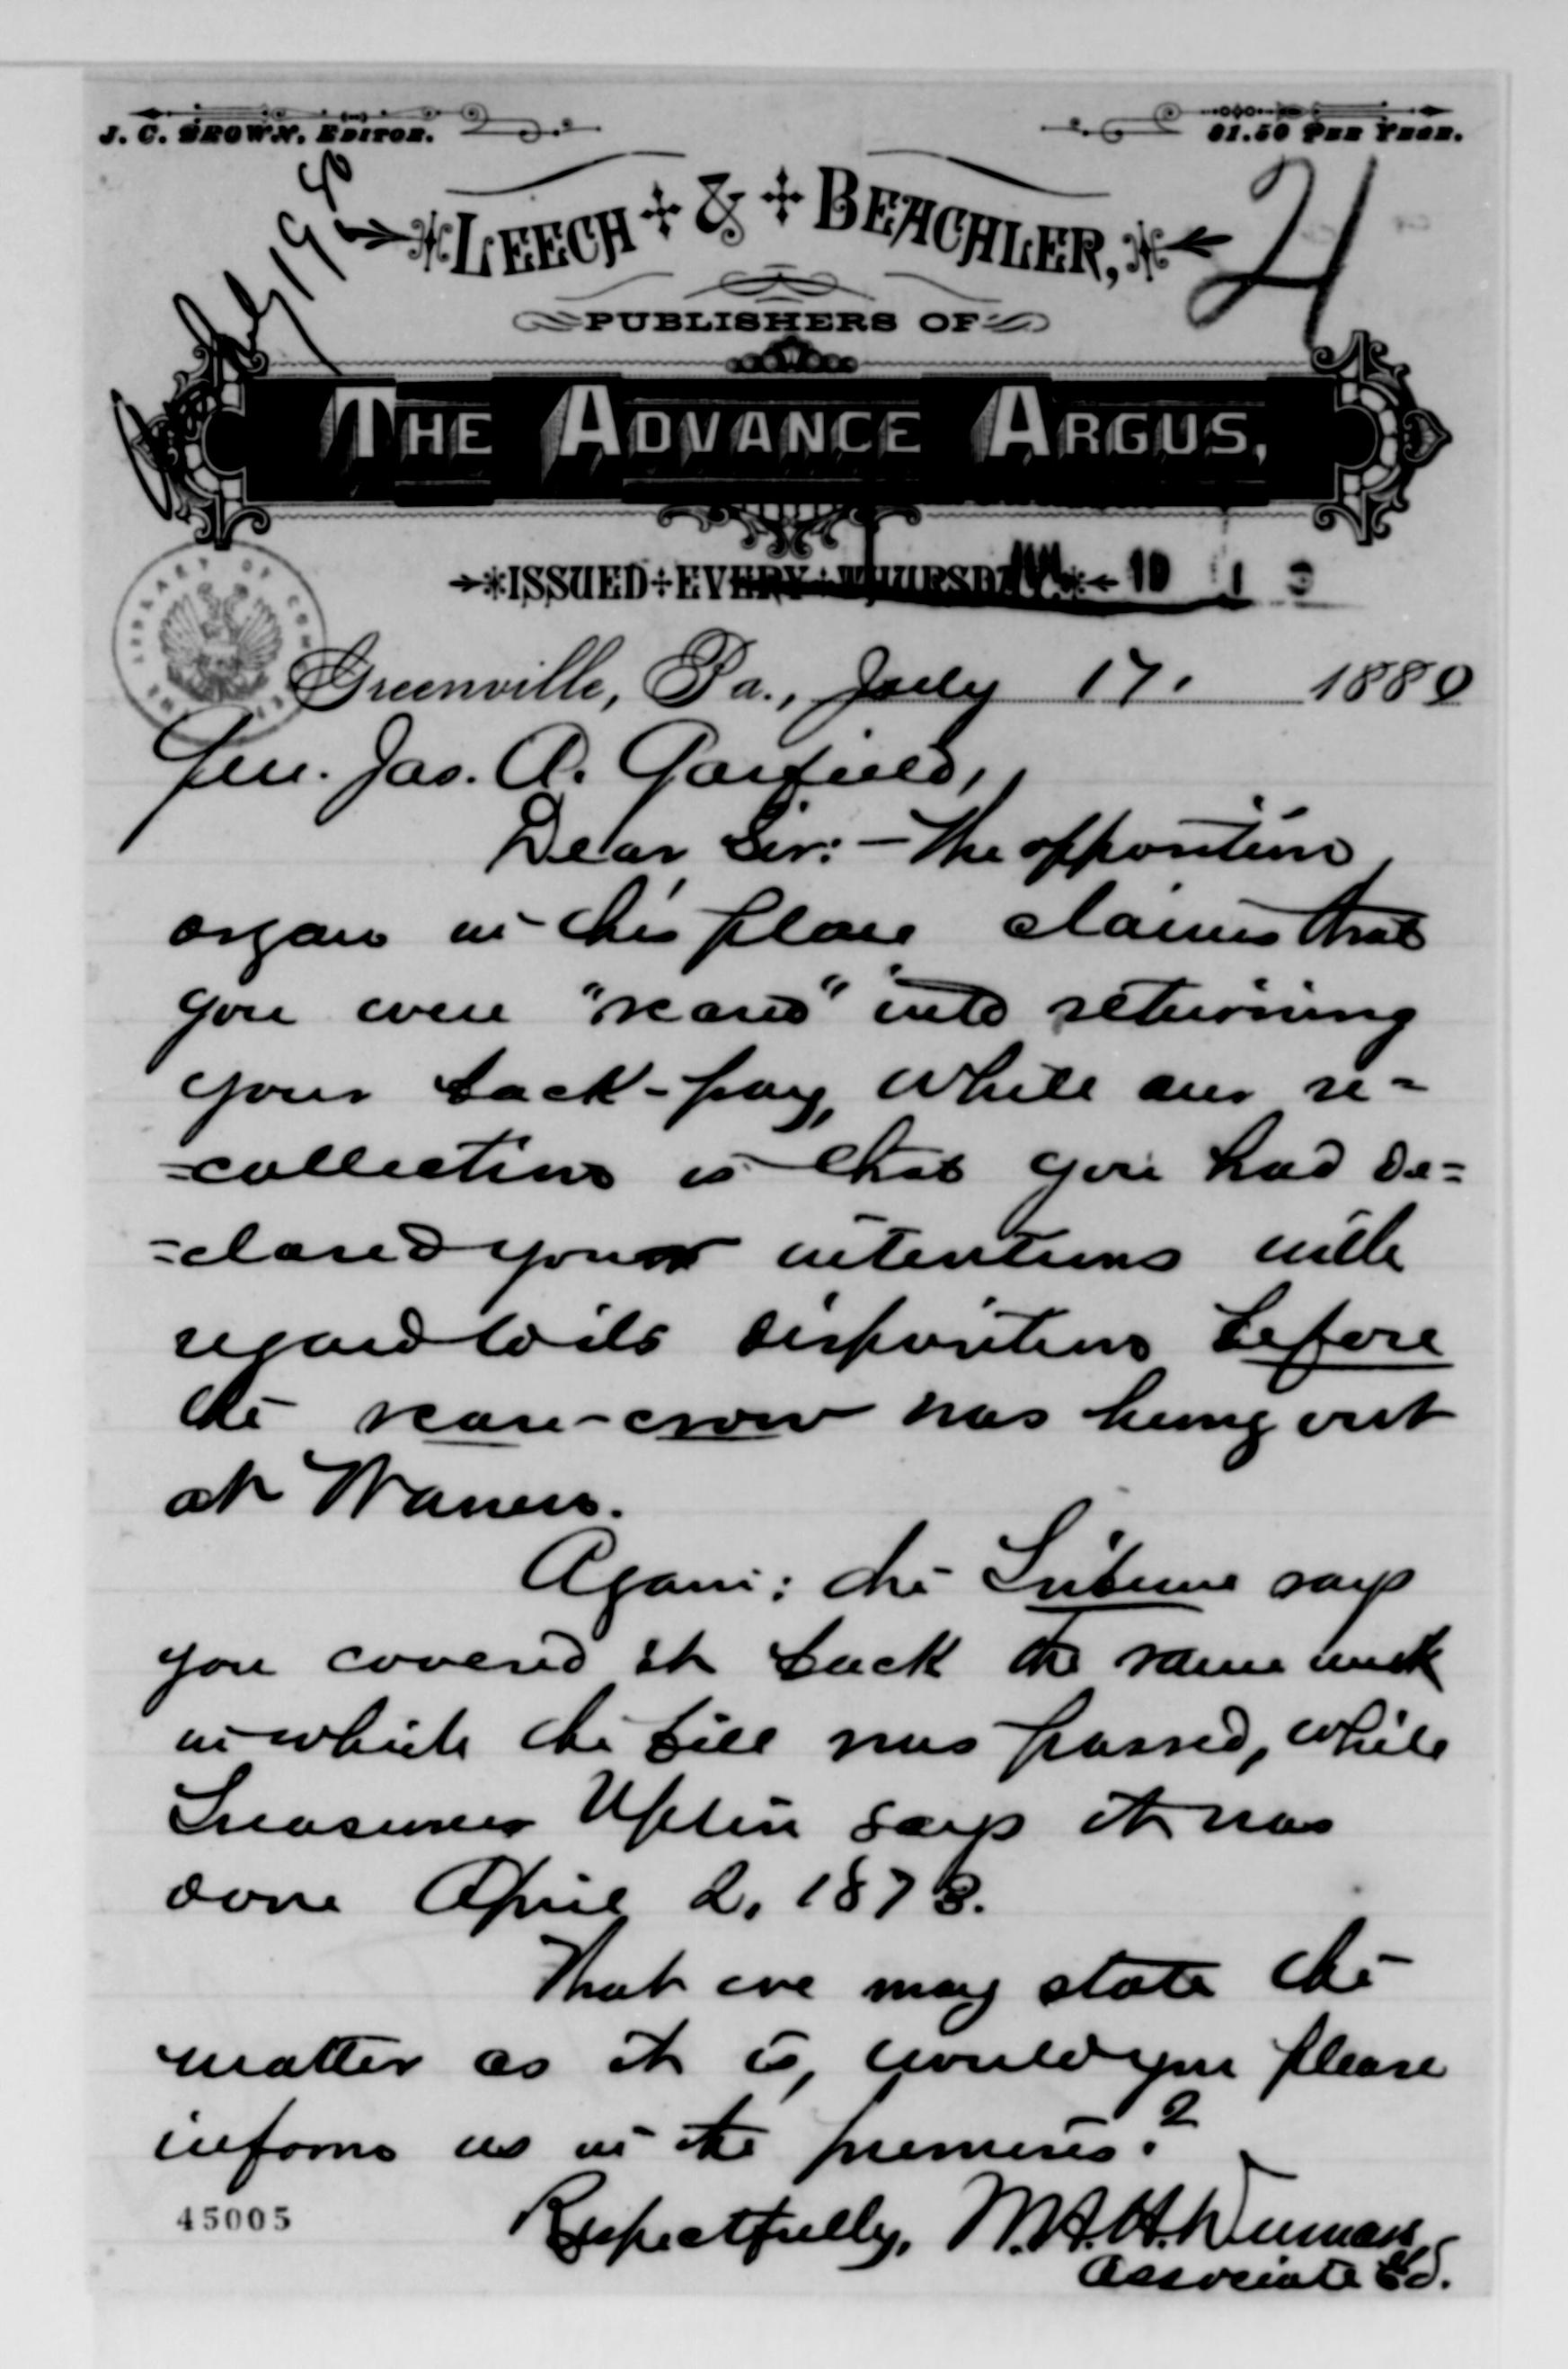 J. C. BROWN, EDITOR.
$1.50 PER YEAR.
July 19
LEECH & BEACHLER,
21
PUBLISHERS OF
THE ADVANCE ARGUS,
ISSUED EVERY THURSDAY
Greenville, Pa., July 17. 1880
Gen. Jas. A. Garfield,
Dear Sir:- The opposition
organ in this place claims that
you were "scared" into returning
your back-pay, while our re-
=collection is that you had de=
=clared your intentions with
regard to its disposition before
the scare-crow was hung out
at Warren.
Again: the Tribune says
you covered it back the same week
in which the bill was passed, while
Treasurer says it was
done April 2, 1873.
That we may state the
matter as it is, would you please
inform us in the premises?
45005
Respectfully,
Associate Ed.